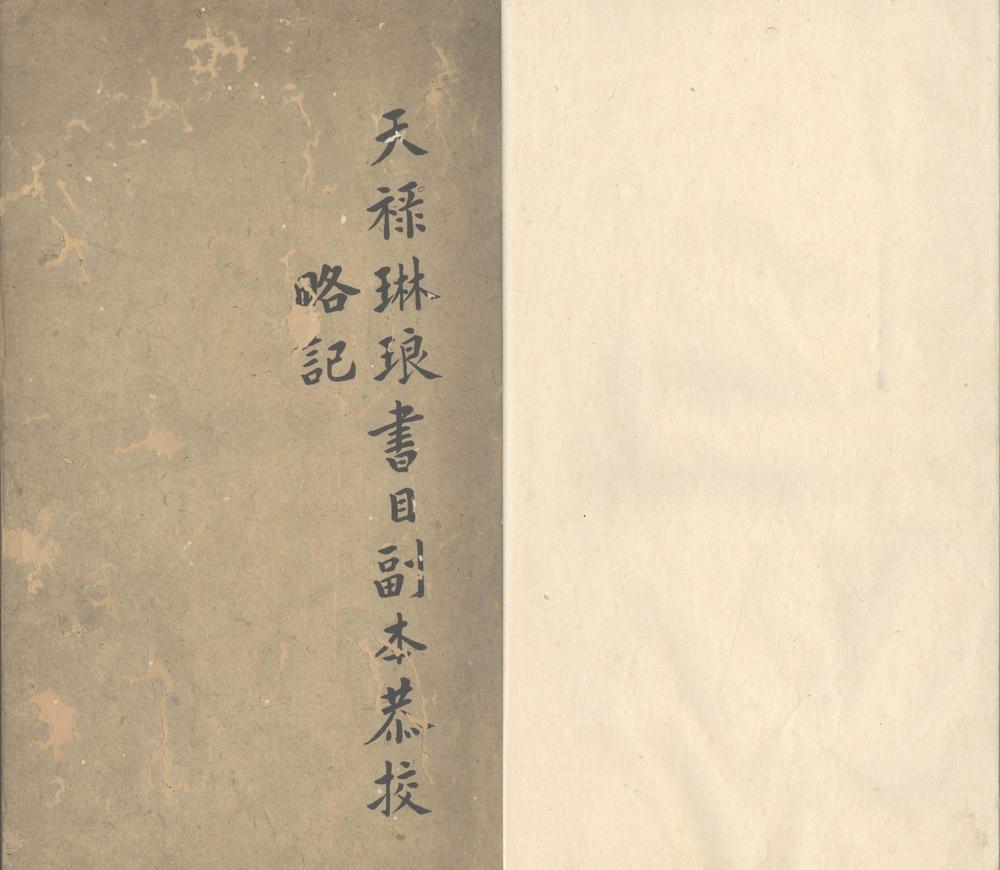 天祿琳琅書目副本恭挍
略記